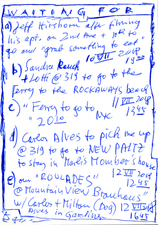 WAITING FOR
a) Jeff Hirshorn after filming
his apt. on 2nd Ave + 9th to
go and "eat something to eat"
10 VII 2018
1920
b) Sandra Rauch
+ Lotti @ 319 to go to the
Ferry to the ROCKAWAYS beach
c) "Ferry to go to 11 VII 2018
"2020 NYC 1345
d) Carlos Alves to pick me up
@ 319 to go to NEW PALTZ
to stay in Marlis Momber's house
e) our "ROULADES" 12 VII 2018
@ Mountain View Brauhaus 1245
w/ Carlos + Milton (Dog) 12 VII 2018
Alves in Gardiner 1645